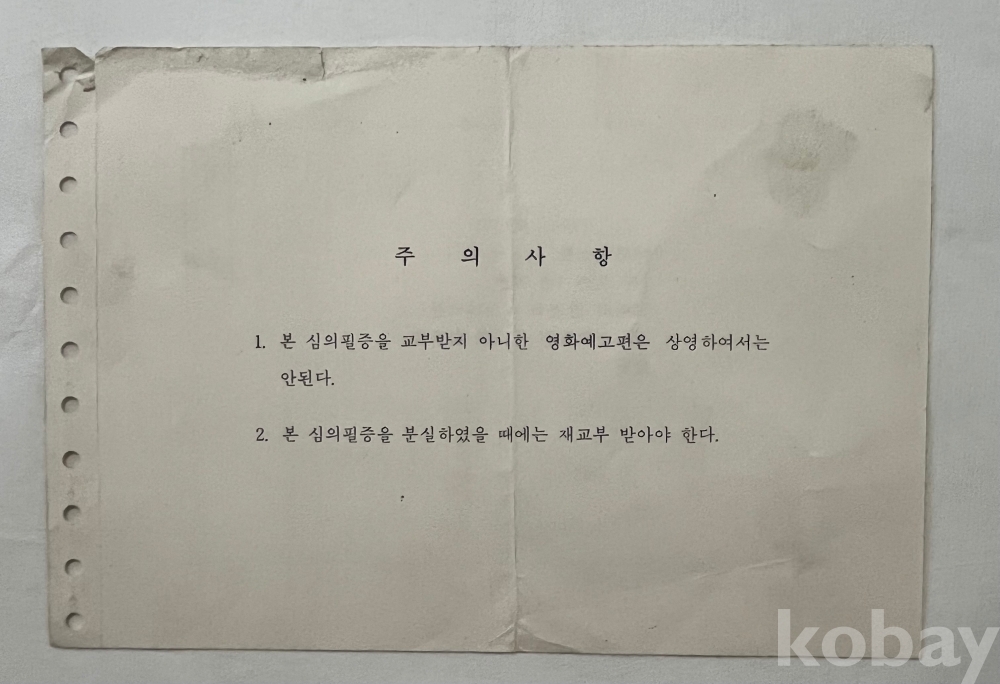 주 의 사 항
1. 본 심의필증을 교부받지 아니한 영화예고편은 상영하여서는
안된다.
2. 본 심의필증을 분실하였을 때에는 재교부 받아야 한다.
kobay